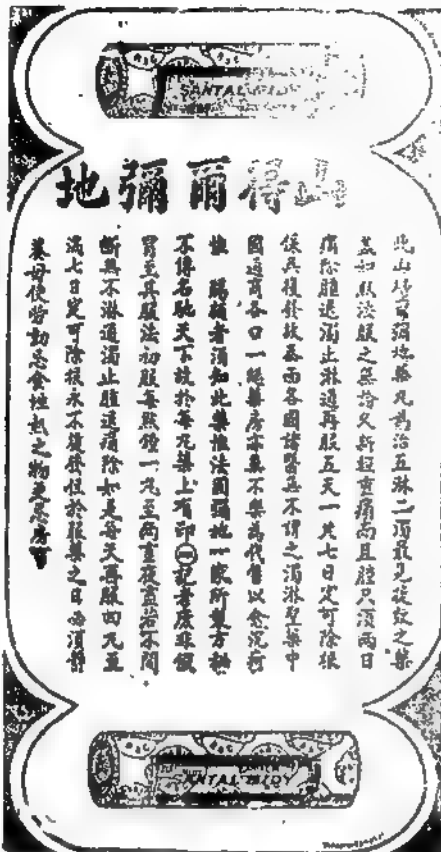 SANTAL MIDY
山得爾彌地
此山得爾彌地藥丸為治五淋二濁最見後效之藥
蓋如照法服之無論久新輕重痛而且腫只須兩日
痛除腫退濁止淋通再服五天一共七日定可除根
保無復發故泰西各國諸醫無不謂之濁淋聖藥中
國通商各口一經藥房亦莫不樂為代售以愈沉疴
惟 賜顧者須知此藥惟法國彌地一家所製方
不得名馳天下故於每丸藥上有印 記者庶非假
冒至其服法初服每點鐘一丸至兩晝夜盡若不間
斷無不淋通濁止腫退痛除如是每天再服四丸至
滿七日定可除根永不復發但於服藥之日必須靜
養毋使勞動忌食性熱之物更忌房事
SANTAL MIDY